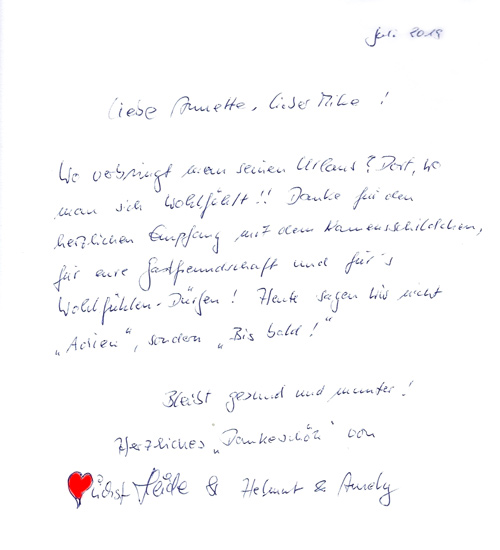 Juli 2019
Liebe Annette, lieber Mike!
Wo verbringt man seinen Urlaub? Dort, wo
man sich wohlfühlt!! Danke für den
herzlichen Empfang mit dem Namensschildchen,
für eure Gastfreundschaft und für's
Wohlfühlen-Dürfen! Heute sagen wir nicht
„Adieu", sondern „Bis bald!"
Bleibt gesund und munter!
Herzliches „Dankeschön" von
lichst Heide & Helmut &